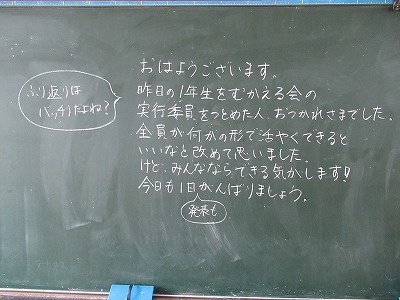 おはようございます。
昨日の1年生をむかえる会の
実行委員をつとめた人、おつかれさまでした。
全員が何かの形で活やくできると
いいなと改めて思いました。
けど、みんなならできる気がします!
今日も1日がんばりましょう。
発表も
ふり返りは
バッチリだよね?